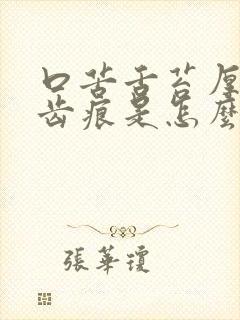 口苦舌苔厚
齿痕是怎麼
張華瓊